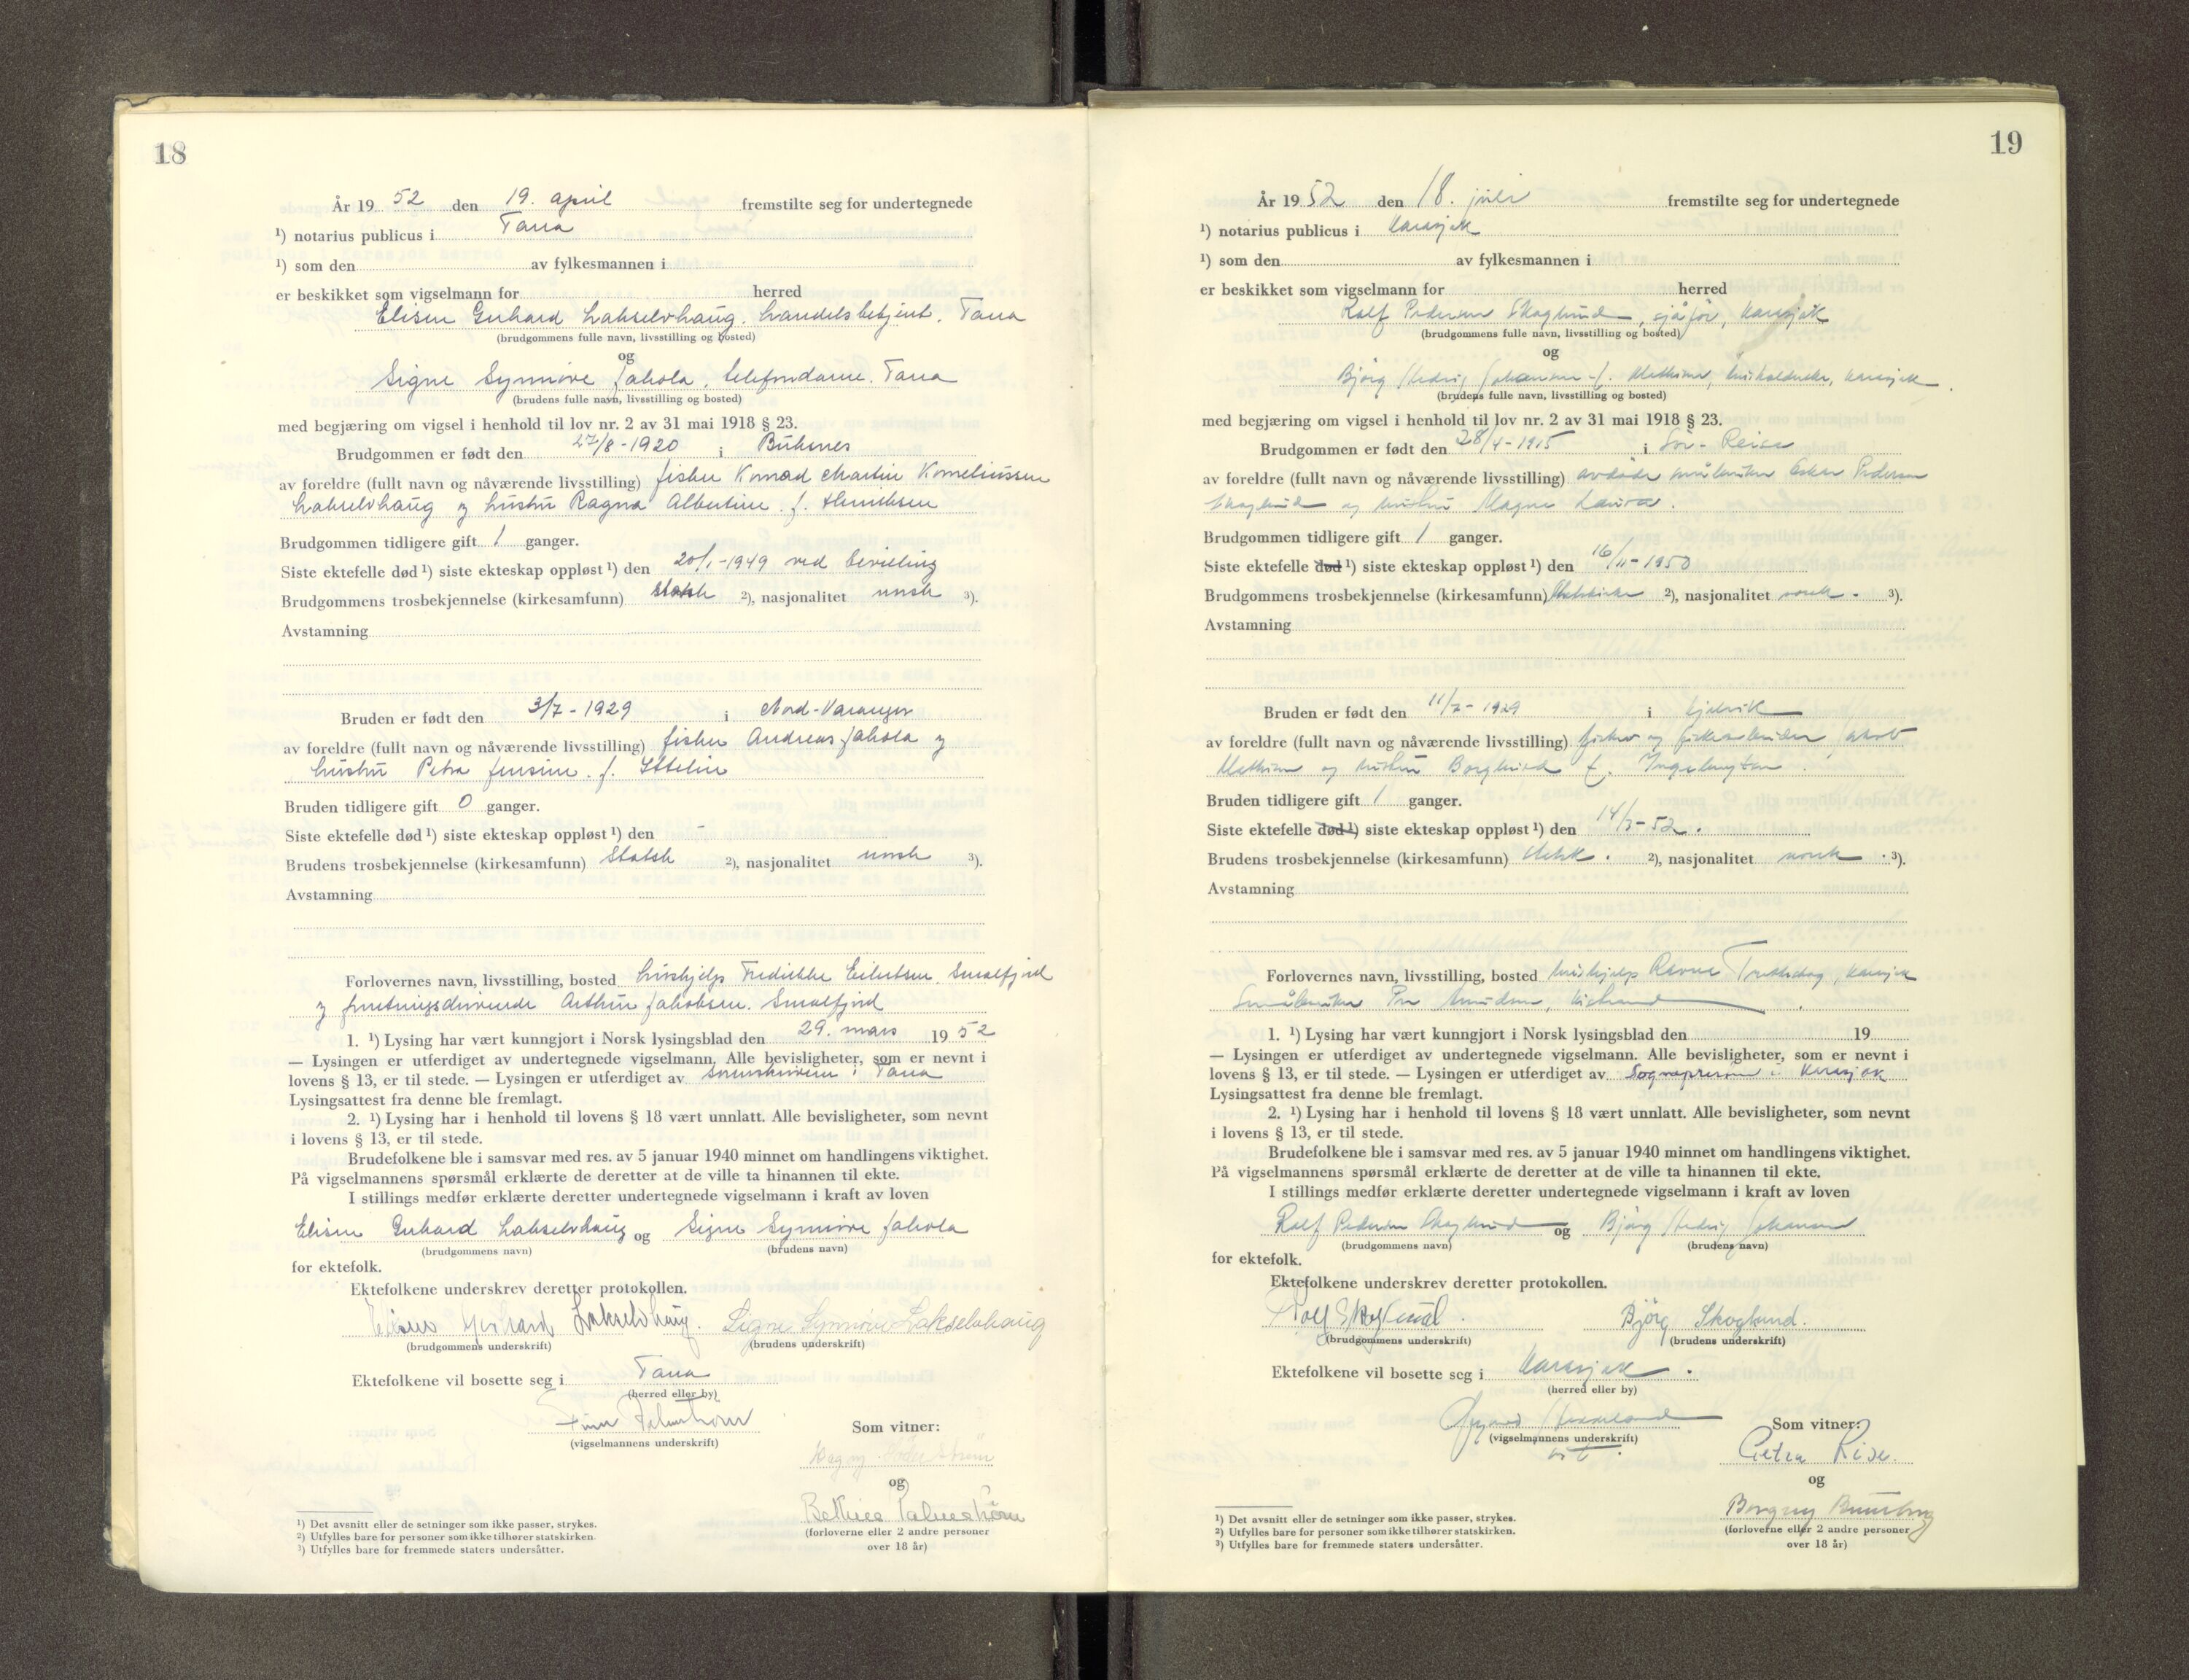 18
År 19 52 den 19. april fremstilte seg for undertegnede
¹) notarius publicus i Tana
¹) som den av fylkesmannen i
er beskikket som vigselmann for herred
Eliseus Gerhard Lakselvhaug. handelsbetjent. Tana
(brudgommens fulle navn, livsstilling og bosted)
og
Signe Synnöve Jakola, telefondame. Tana
(brudens fulle navn, livsstilling og bosted)
med begjæring om vigsel i henhold til lov nr. 2 av 31 mai 1918 § 23.
Brudgommen er født den 27/8-1920 i Buksnes
av foreldre (fullt navn og nåværende livsstilling) fisker Konrad Martin Korneliussen
Lakselvhaug og hustru Ragna Albertine f. Henriksen
Brudgommen tidligere gift 1 ganger.
Siste ektefelle død ¹) siste ekteskap oppløst ¹) den 20/1-1949 ved bevilling
Brudgommens trosbekjennelse (kirkesamfunn) Statsk ²), nasjonalitet norsk ³).
Avstamning
Bruden er født den 3/7-1929 i Nord-Varanger
av foreldre (fullt navn og nåværende livsstilling) fisker Andreas Jakola og
hustru Petra Jensine f.
Bruden tidligere gift 0 ganger.
Siste ektefelle død ¹) siste ekteskap oppløst ¹) den -
Brudens trosbekjennelse (kirkesamfunn) Statsk ²), nasjonalitet norsk ³).
Avstamning
Forlovernes navn, livsstilling, bosted hushjelp Fredrikke Eilertsen. Smalfjord
og forretningsdrivende Arthur Jakobsen. Smalfjord
1. ¹) Lysing har vært kunngjort i Norsk lysingsblad den 29. mars 1952
— Lysingen er utferdiget av undertegnede vigselmann. Alle bevisligheter, som er nevnt i
lovens § 13, er til stede. — Lysingen er utferdiget av sorenskriveren i Tana
Lysingsattest fra denne ble fremlagt.
2. ¹) Lysing har i henhold til lovens § 18 vært unnlatt. Alle bevisligheter, som nevnt
i lovens § 13, er til stede.
Brudefolkene ble i samsvar med res. av 5 januar 1940 minnet om handlingens viktighet.
På vigselmannens spørsmål erklærte de deretter at de ville ta hinannen til ekte.
I stillings medfør erklærte deretter undertegnede vigselmann i kraft av loven
Eliseus Gerhard Lakselvhaug og Signe Synnöve Jakola
(brudgommens navn) (brudens navn)
for ektefolk.
Ektefolkene underskrev deretter protokollen.
Eliseus Gerhard Lakselvhaug. Signe Synnöve Lakselvhaug
(brudgommens underskrift) (brudens underskrift)
Ektefolkene vil bosette seg i Tana
(herred eller by)
Finn Palmstrøm
(vigselmannens underskrift)
Som vitner:
Dagny
og
Bethiee Palmstrøm
(forloverne eller 2 andre personer
over 18 år)
¹) Det avsnitt eller de setninger som ikke passer, strykes.
²) Utfylles bare for personer som ikke tilhører statskirken.
³) Utfylles bare for fremmede staters undersåtter.
19
År 1952 den 18. juli fremstilte seg for undertegnede
¹) notarius publicus i Karasjok
¹) som den av fylkesmannen i
er beskikket som vigselmann for herred
Rolf Pedersen Skoglund, sjåfør, Karasjok
(brudgommens fulle navn, livsstilling og bosted)
og
Bjørg Hedvig Johansen f. Mathisen, Karasjok
(brudens fulle navn, livsstilling og bosted)
med begjæring om vigsel i henhold til lov nr. 2 av 31 mai 1918 § 23.
Brudgommen er født den 28/4-1915 i Sør-Reisa
av foreldre (fullt navn og nåværende livsstilling) avdøde småbruker Oskar Pedersen
Skoglund og hustru Magna Laura.
Brudgommen tidligere gift 1 ganger.
Siste ektefelle død ¹) siste ekteskap oppløst ¹) den 16/11-1950
Brudgommens trosbekjennelse (kirkesamfunn) Statskirke ²), nasjonalitet norsk. ³).
Avstamning
Bruden er født den 11/7-1929 i
av foreldre (fullt navn og nåværende livsstilling) fisker og Jakob
Mathisen og hustru Borghild f. Ingebrigtsen.
Bruden tidligere gift 1 ganger.
Siste ektefelle død ¹) siste ekteskap oppløst ¹) den 14/3-52.
Brudens trosbekjennelse (kirkesamfunn) Statsk. ²), nasjonalitet norsk. ³).
Avstamning
Forlovernes navn, livsstilling, bosted hushjelp Ravna Karasjok
Småbruker Per
1. ¹) Lysing har vært kunngjort i Norsk lysingsblad den 19
— Lysingen er utferdiget av undertegnede vigselmann. Alle bevisligheter, som er nevnt i
lovens § 13, er til stede. — Lysingen er utferdiget av Sognepresten i Karasjok
Lysingsattest fra denne ble fremlagt.
2. ¹) Lysing har i henhold til lovens § 18 vært unnlatt. Alle bevisligheter, som nevnt
i lovens § 13, er til stede.
Brudefolkene ble i samsvar med res. av 5 januar 1940 minnet om handlingens viktighet.
På vigselmannens spørsmål erklærte de deretter at de ville ta hinannen til ekte.
I stillings medfør erklærte deretter undertegnede vigselmann i kraft av loven
Rolf Pedersen Skoglund og Bjørg Hedvig Johansen
(brudgommens navn) (brudens navn)
for ektefolk.
Ektefolkene underskrev deretter protokollen.
Rolf Skoglund. Bjørg Skoglund.
(brudgommens underskrift) (brudens underskrift)
Ektefolkene vil bosette seg i Karasjok.
(herred eller by)
(vigselmannens underskrift)
Som vitner:
Petra Rise.
og
Borgny
(forloverne eller 2 andre personer
over 18 år)
¹) Det avsnitt eller de setninger som ikke passer, strykes.
²) Utfylles bare for personer som ikke tilhører statskirken.
³) Utfylles bare for fremmede staters undersåtter.